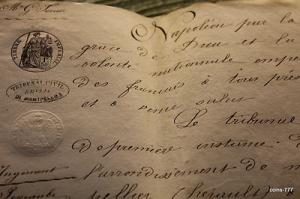 Mr G
Napoléon par la
grâce de Dieu et la
volonté nationale empe
des français à tous prés
et à venir salut
TRIBUNAL CIVIL
DE MONTPELLIER
Le tribunal
de première instance
Jugement
l'arrondissement de m
pellier (hérault)
coins-777